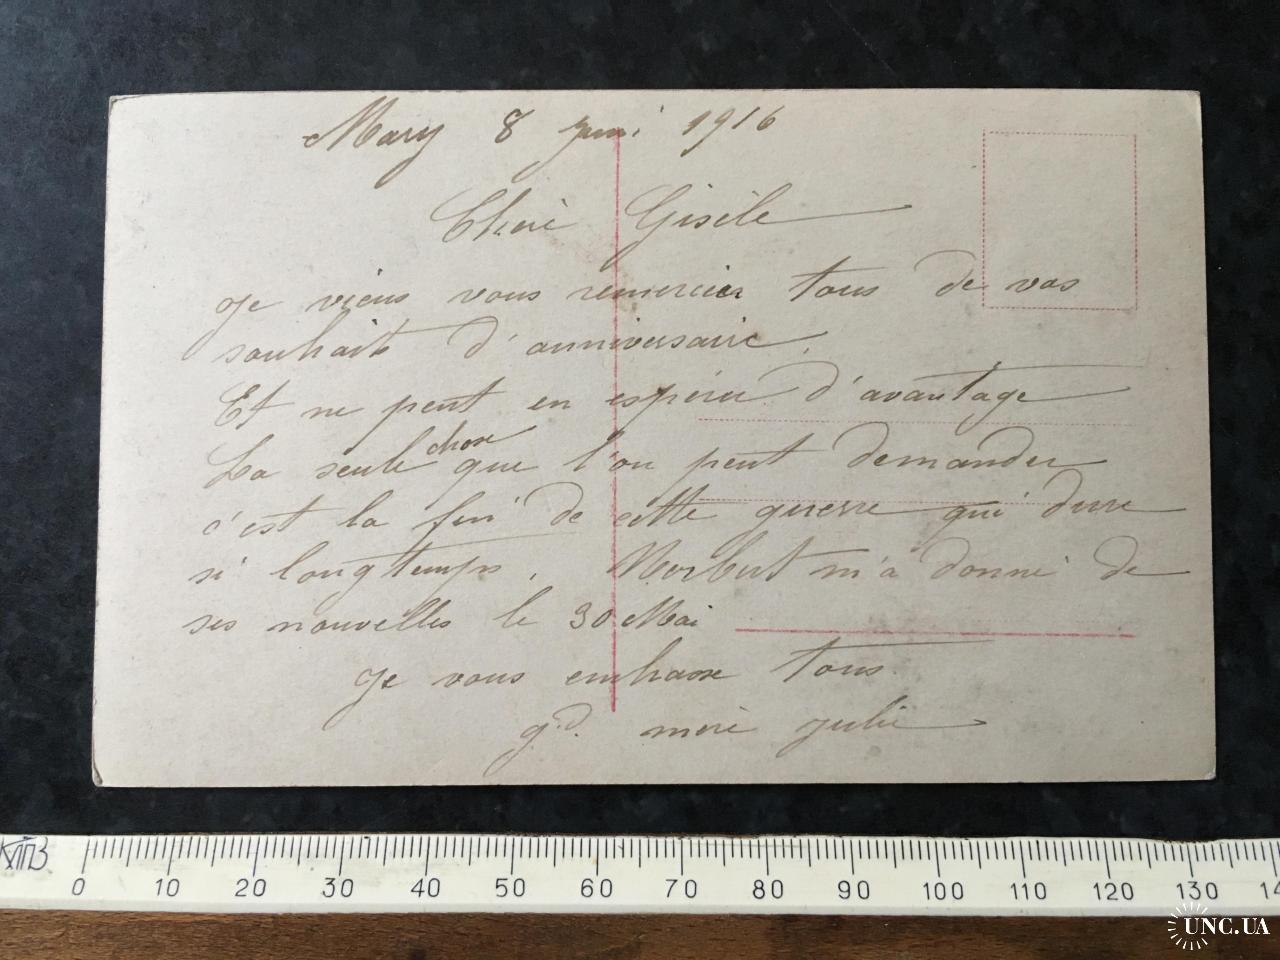 Mary 8 juin 1916
Chère Gisèle
je viens vous remercier tous de vos
souhait d'anniversaire.
Et ne peut en espérer d'avantage
La seule chose que l'on peut demander
c'est la fin de cette guerre qui dure
si longtemps. Norbert m'a donné de
ses nouvelles le 30 Mai
je vous embrasse tous.
gd. mère julie
0 10 20 30 40 50 60 70 80 90 100 110 120 130 14
UNC.UA